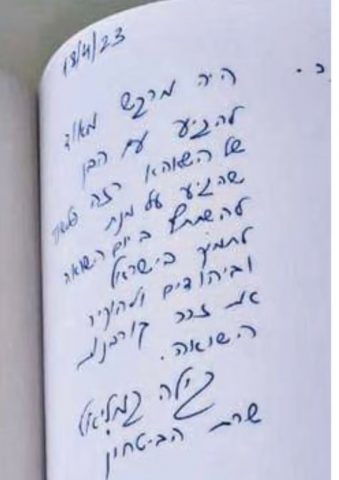 18/4/23
היה מרגש מאוד
להגיע עם הבן
של רזה
שהגיע על מנת
להשתתף ביום השואה
לתמוך בישראל
וביהודים ולהוקיר
את זכר קורבנות
השואה.
גילה גמליאל
שרת הביטחון